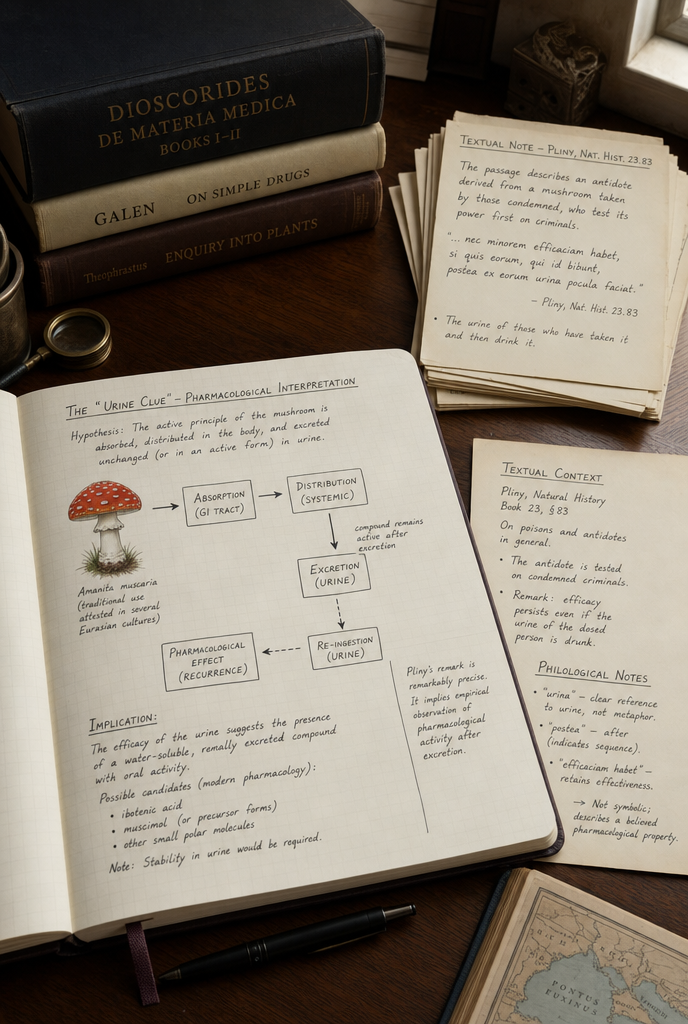 DIOSCORIDES
DE MATERIA MEDICA
BOOKS I–II
GALEN ON SIMPLE DRUGS
Theophrastus ENQUIRY INTO PLANTS
TEXTUAL NOTE – PLINY, NAT. HIST. 23.83
The passage describes an antidote
derived from a mushroom taken
by those condemned, who test its
power first on criminals.
"... nec minorem efficaciam habet,
si quis eorum, qui id bibunt,
postea ex eorum urina pocula faciat."
– Pliny, Nat. Hist. 23.83
• The urine of those who have taken it
and then drink it.
THE "URINE CLUE" – PHARMACOLOGICAL INTERPRETATION
Hypothesis: The active principle of the mushroom is
absorbed, distributed in the body, and excreted
unchanged (or in an active form) in urine.
ABSORPTION
(GI TRACT)
DISTRIBUTION
(SYSTEMIC)
compound remains
active after
excretion
EXCRETION
(URINE)
RE-INGESTION
(URINE)
PHARMACOLOGICAL
EFFECT
(RECURRENCE)
Amanita muscaria
(traditional use
attested in several
Eurasian cultures)
Pliny's remark is
remarkably precise.
It implies empirical
observation of
pharmacological
activity after
excretion.
IMPLICATION:
The efficacy of the urine suggests the presence
of a water-soluble, renally excreted compound
with oral activity.
Possible candidates (modern pharmacology):
• ibotenic acid
• muscimol (or precursor forms)
• other small polar molecules
Note: Stability in urine would be required.
TEXTUAL CONTEXT
Pliny, Natural History
Book 23, § 83
On poisons and antidotes
in general.
• The antidote is tested
on condemned criminals.
• Remark: efficacy
persists even if the
urine of the dosed
person is drunk.
PHILOLOGICAL NOTES
• "urina" – clear reference
to urine, not metaphor.
• "postea" – after
(indicates sequence).
• "efficaciam habet" –
retains effectiveness.
→ Not symbolic;
describes a believed
pharmacological property.
PONTUS
EUXINUS